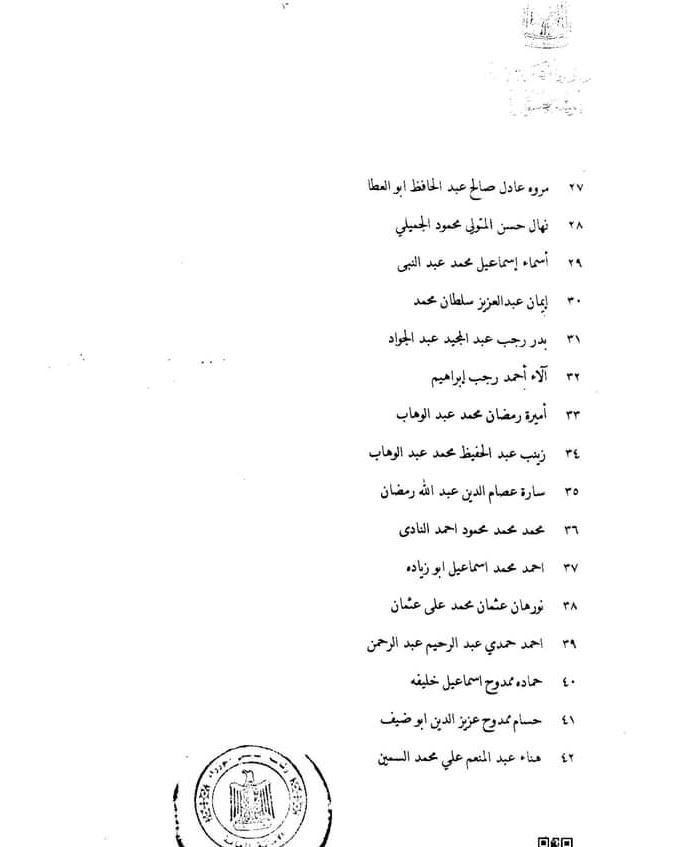 ٢٧ مروه عادل صالح عبد الحافظ ابو العطا
٢٨ نهال حسن المتولى محمود الجميلي
٢٩ أسماء إسماعيل محمد عبد النبى
٣٠ إيمان عبدالعزيز سلطان محمد
٣١ بدر رجب عبد المجيد عبد الجواد
٣٢ آلاء أحمد رجب إبراهيم
٣٣ أميرة رمضان محمد عبد الوهاب
٣٤ زينب عبد الحفيظ محمد عبد الوهاب
٣٥ سارة عصام الدين عبد الله رمضان
٣٦ محمد محمد محمود احمد النادى
٣٧ احمد محمد اسماعيل ابو زياده
٣٨ نورهان عثمان محمد على عثمان
٣٩ احمد حمدي عبد الرحيم عبد الرحمن
٤٠ حماده ممدوح اسماعيل خليفه
٤١ حسام ممدوح عزيز الدين ابو ضيف
٤٢ هناء عبد المنعم علي محمد السمين